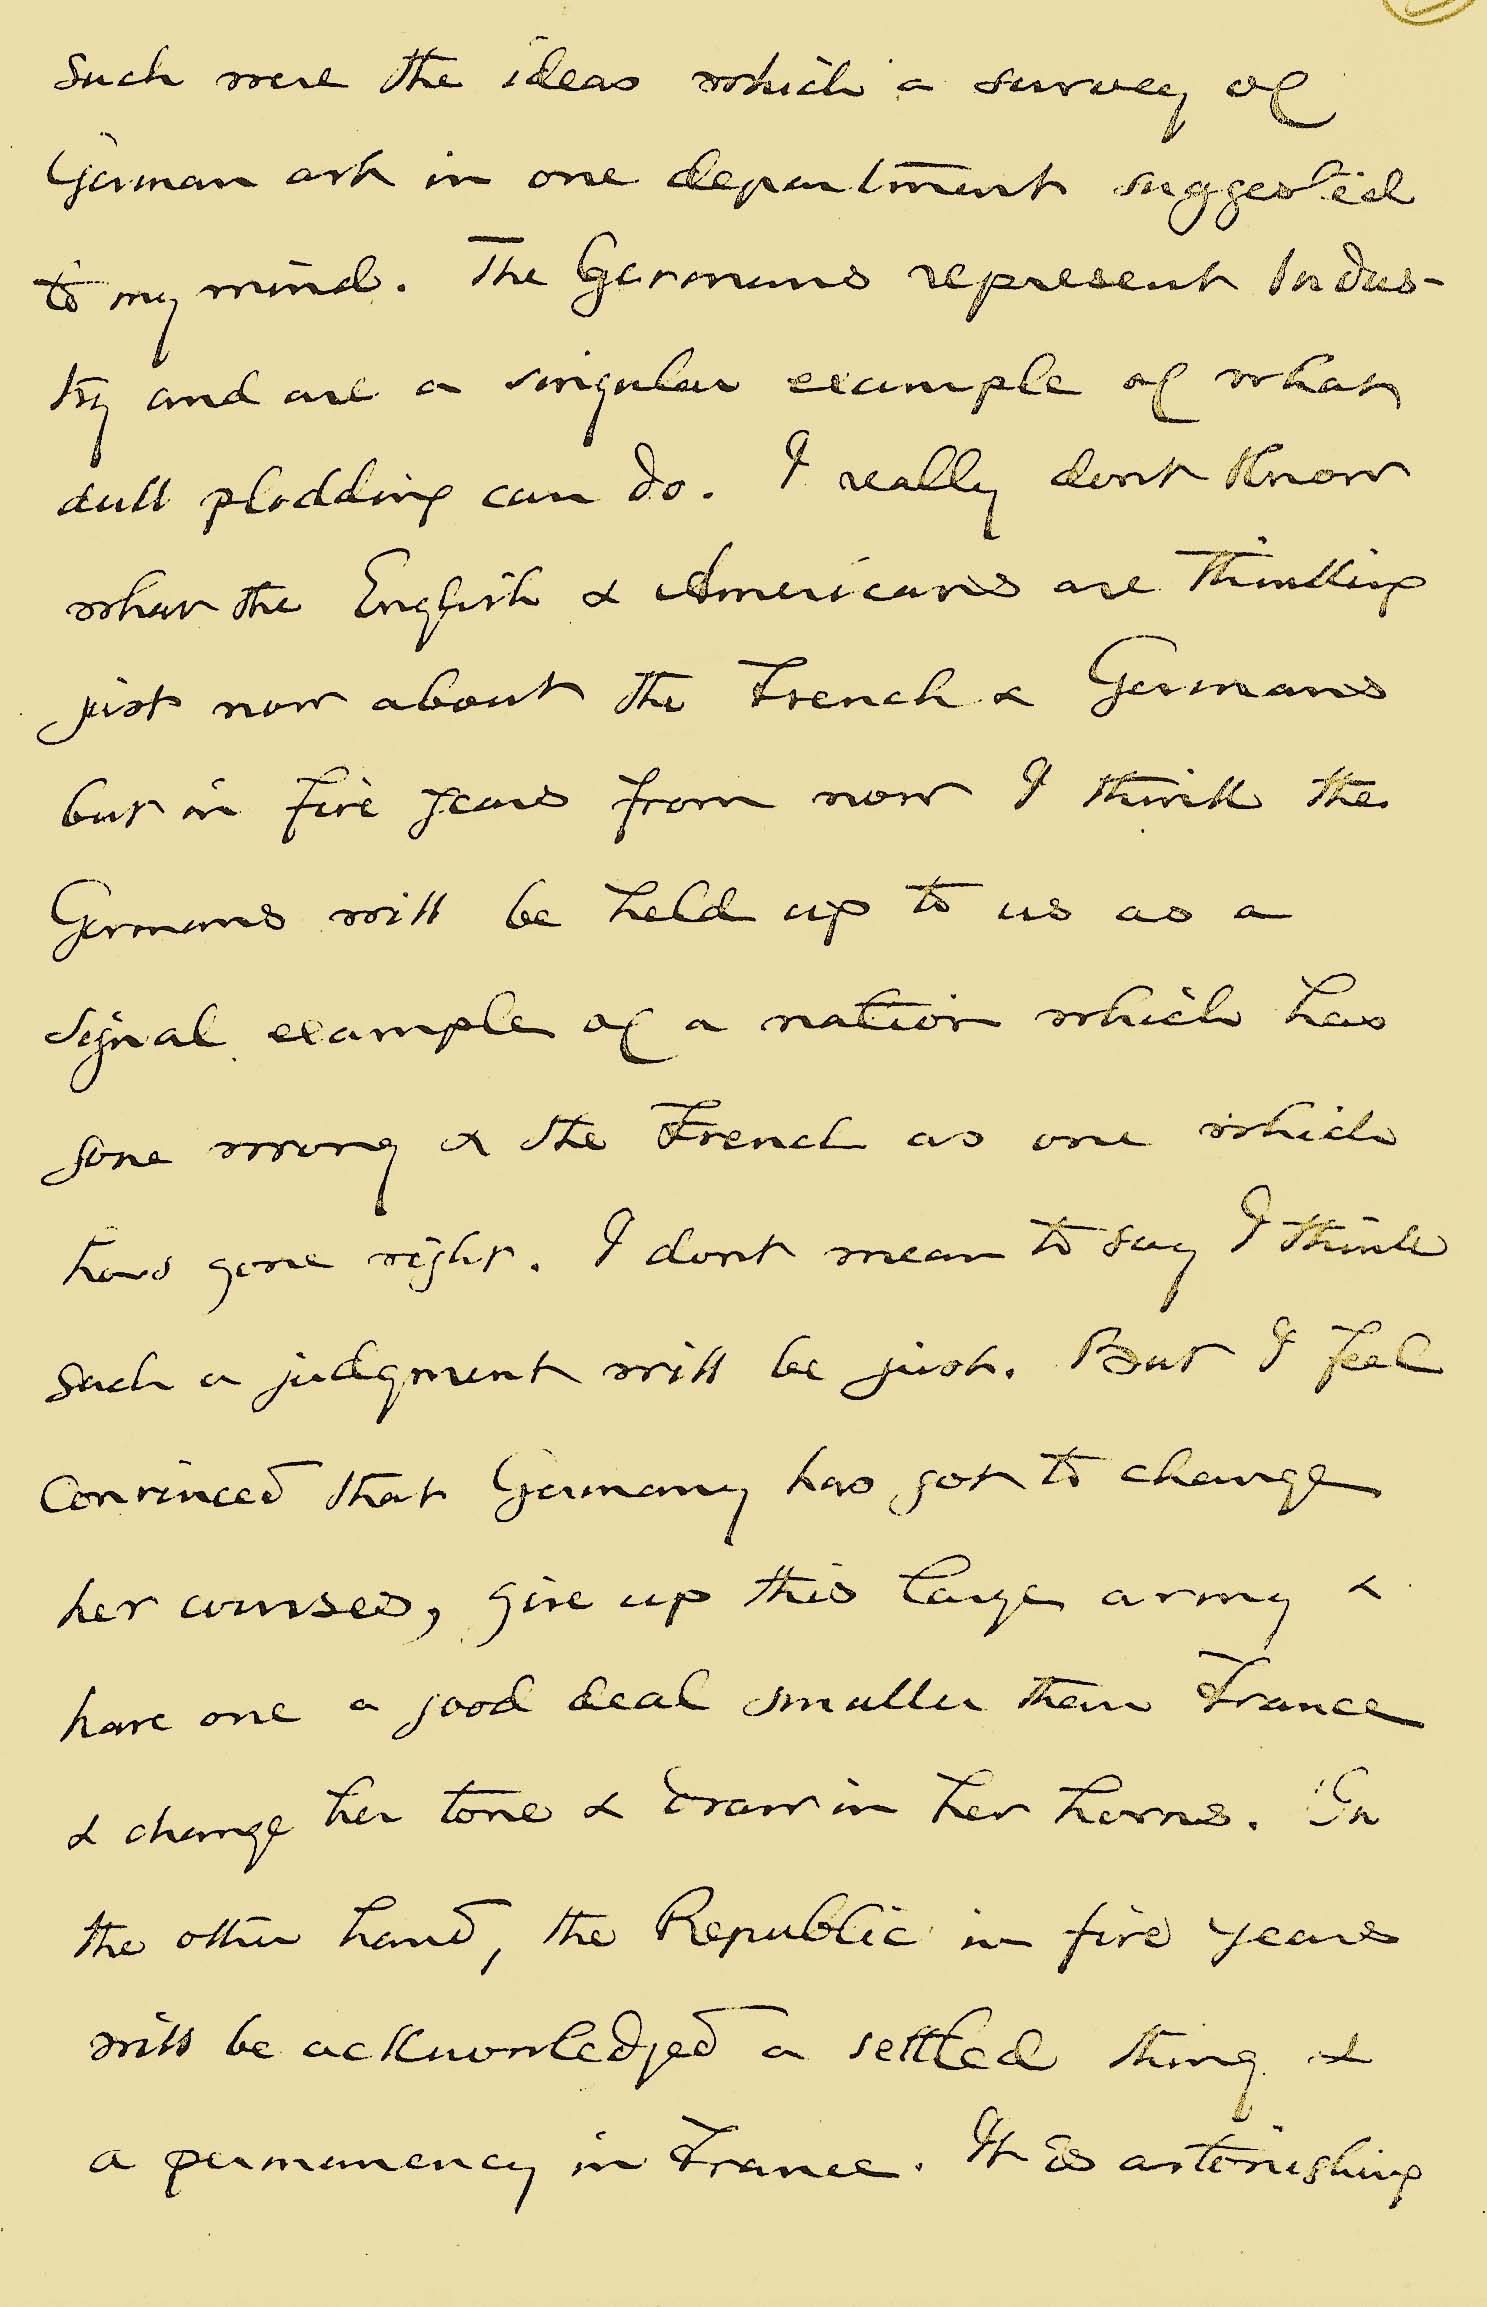 Such were the ideas which a survey of
German art in one department suggested
to my mind. The Germans represent Indus-
try and are a singular example of what
dull plodding can do. I really dont know
what the English & Americans are thinking
just now about the French & Germans
but in five years from now I think the
Germans will be held up to us as a
signal example of a nation which has
gone wrong & the French as one which
has gone right. I dont mean to say I think
such a judgment will be just. But I feel
convinced that Germany has got to change
her courses, give up this large army &
have one a good deal smaller than France
& change her tone & draw in her horns. On
the other hand, the Republic in five years
will be acknowledged a settled thing &
a permanency in France. It is astonishing